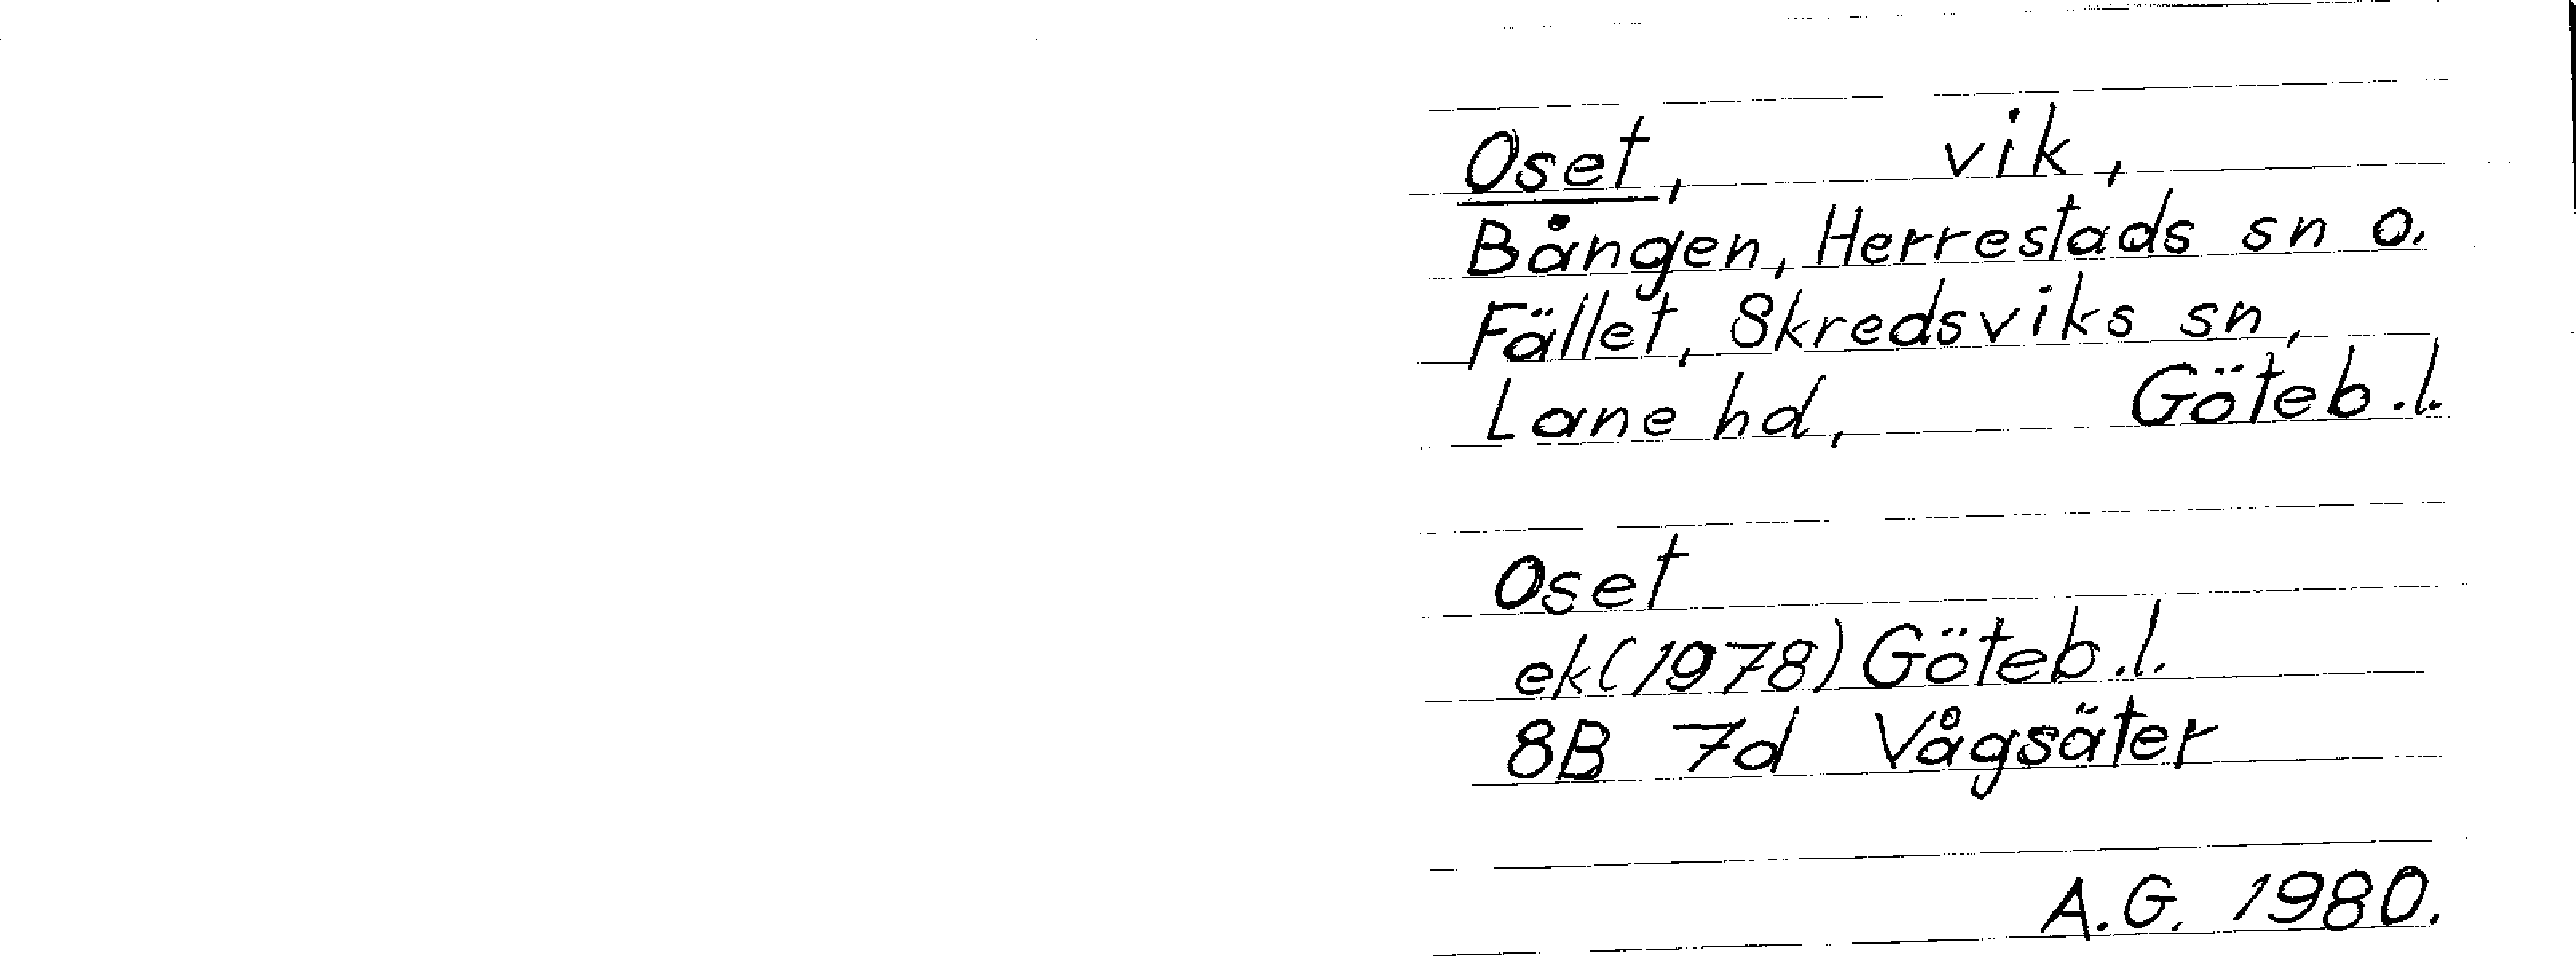 Oset, vik,
Bången, Herrestads sn o.
Fället, Skredsviks sn,
Lane hd, Göteb.l.
Oset
ek(1978) Göteb.l.
8B 7d Vågsäter
A.G. 1980.